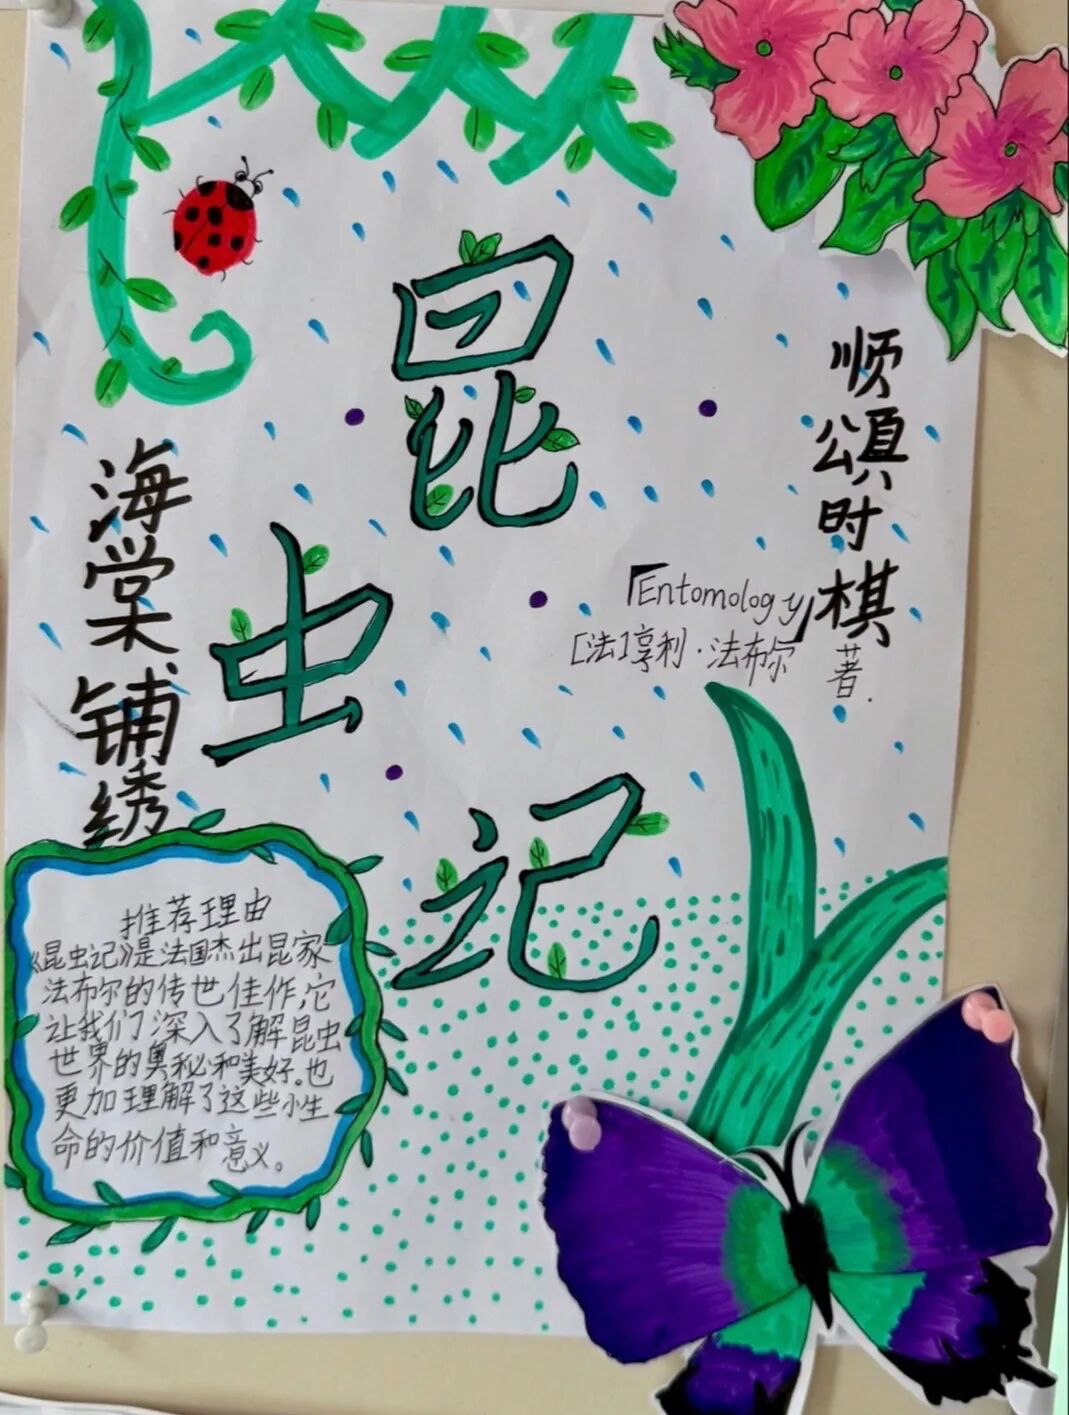 昆虫记
顺颂时棋
海棠铺绣
「Entomology」
[法]亨利·法布尔
著.
推荐理由
《昆虫记》是法国杰出昆家
法布尔的传世佳作,它
让我们深入了解昆虫
世界的奥秘和美好.也
更加理解了这些小生
命的价值和意义。